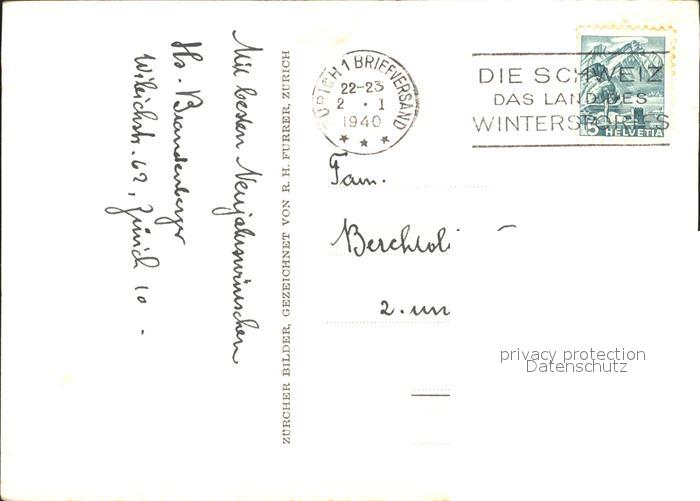 Mit besten Neujahrswünschen
Hs. Brandenberger
Wibichstr. 62, Zürich 10.
ZÜRCHER BILDER, GEZEICHNET VON R. H. FURRER, ZÜRICH
ZÜRICH 1 BRIEFVERSAND
22-23
2 · I
1940
DIE SCHWEIZ
DAS LAND DES
WINTERSPORTES
5 HELVETIA
Fam.
Berchtol
2. un
privacy protection
Datenschutz